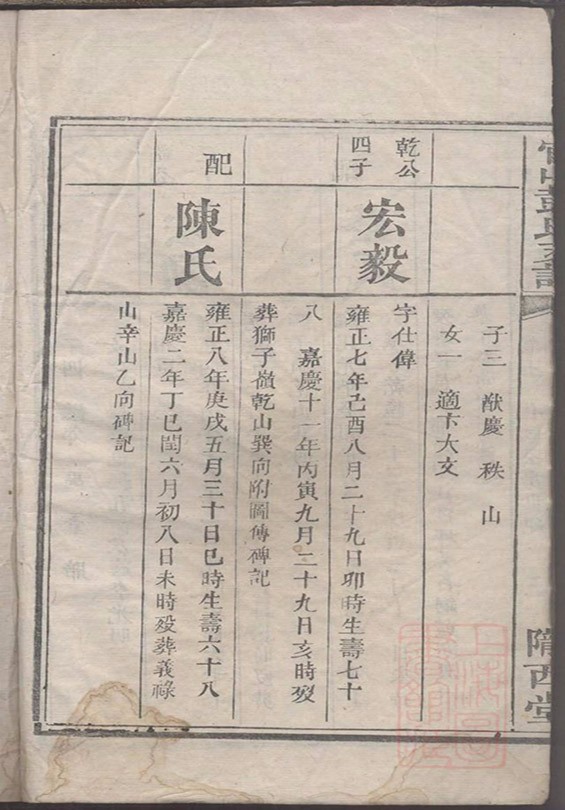 彭氏支譜
隴西堂
子三 猷慶 秩 山
女一 適卞大文
乾公
四子
宏毅
字仕偉
雍正七年己酉八月二十九日卯時生壽七十
八 嘉慶十一年丙寅九月二十九日亥時歿
葬獅子嶺乾山巽向附圖傳碑記
配
陳氏
雍正八年庚戌五月三十日巳時生壽六十八
嘉慶二年丁巳閏六月初八日未時歿葬義祿
山辛山乙向碑記